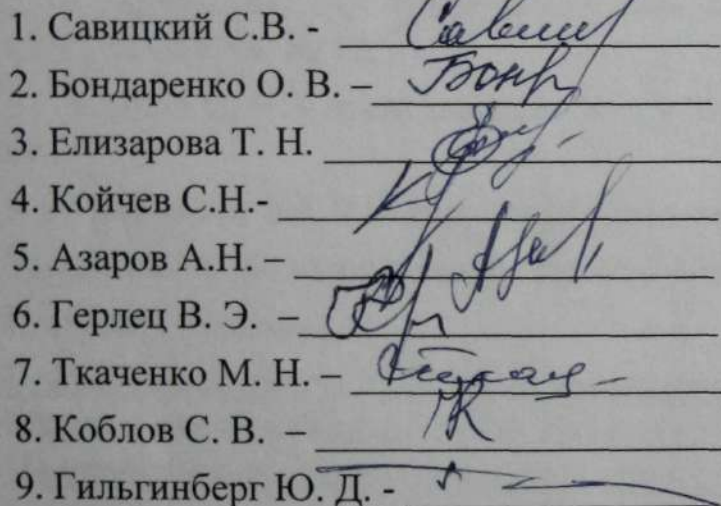 1. Савицкий С.В. -
2. Бондаренко О. В. –
3. Елизарова Т. Н.
4. Койчев С.Н.-
5. Азаров А.Н. –
6. Герлец В. Э. –
7. Ткаченко М. Н. –
8. Коблов С. В. –
9. Гильгинберг Ю. Д. -